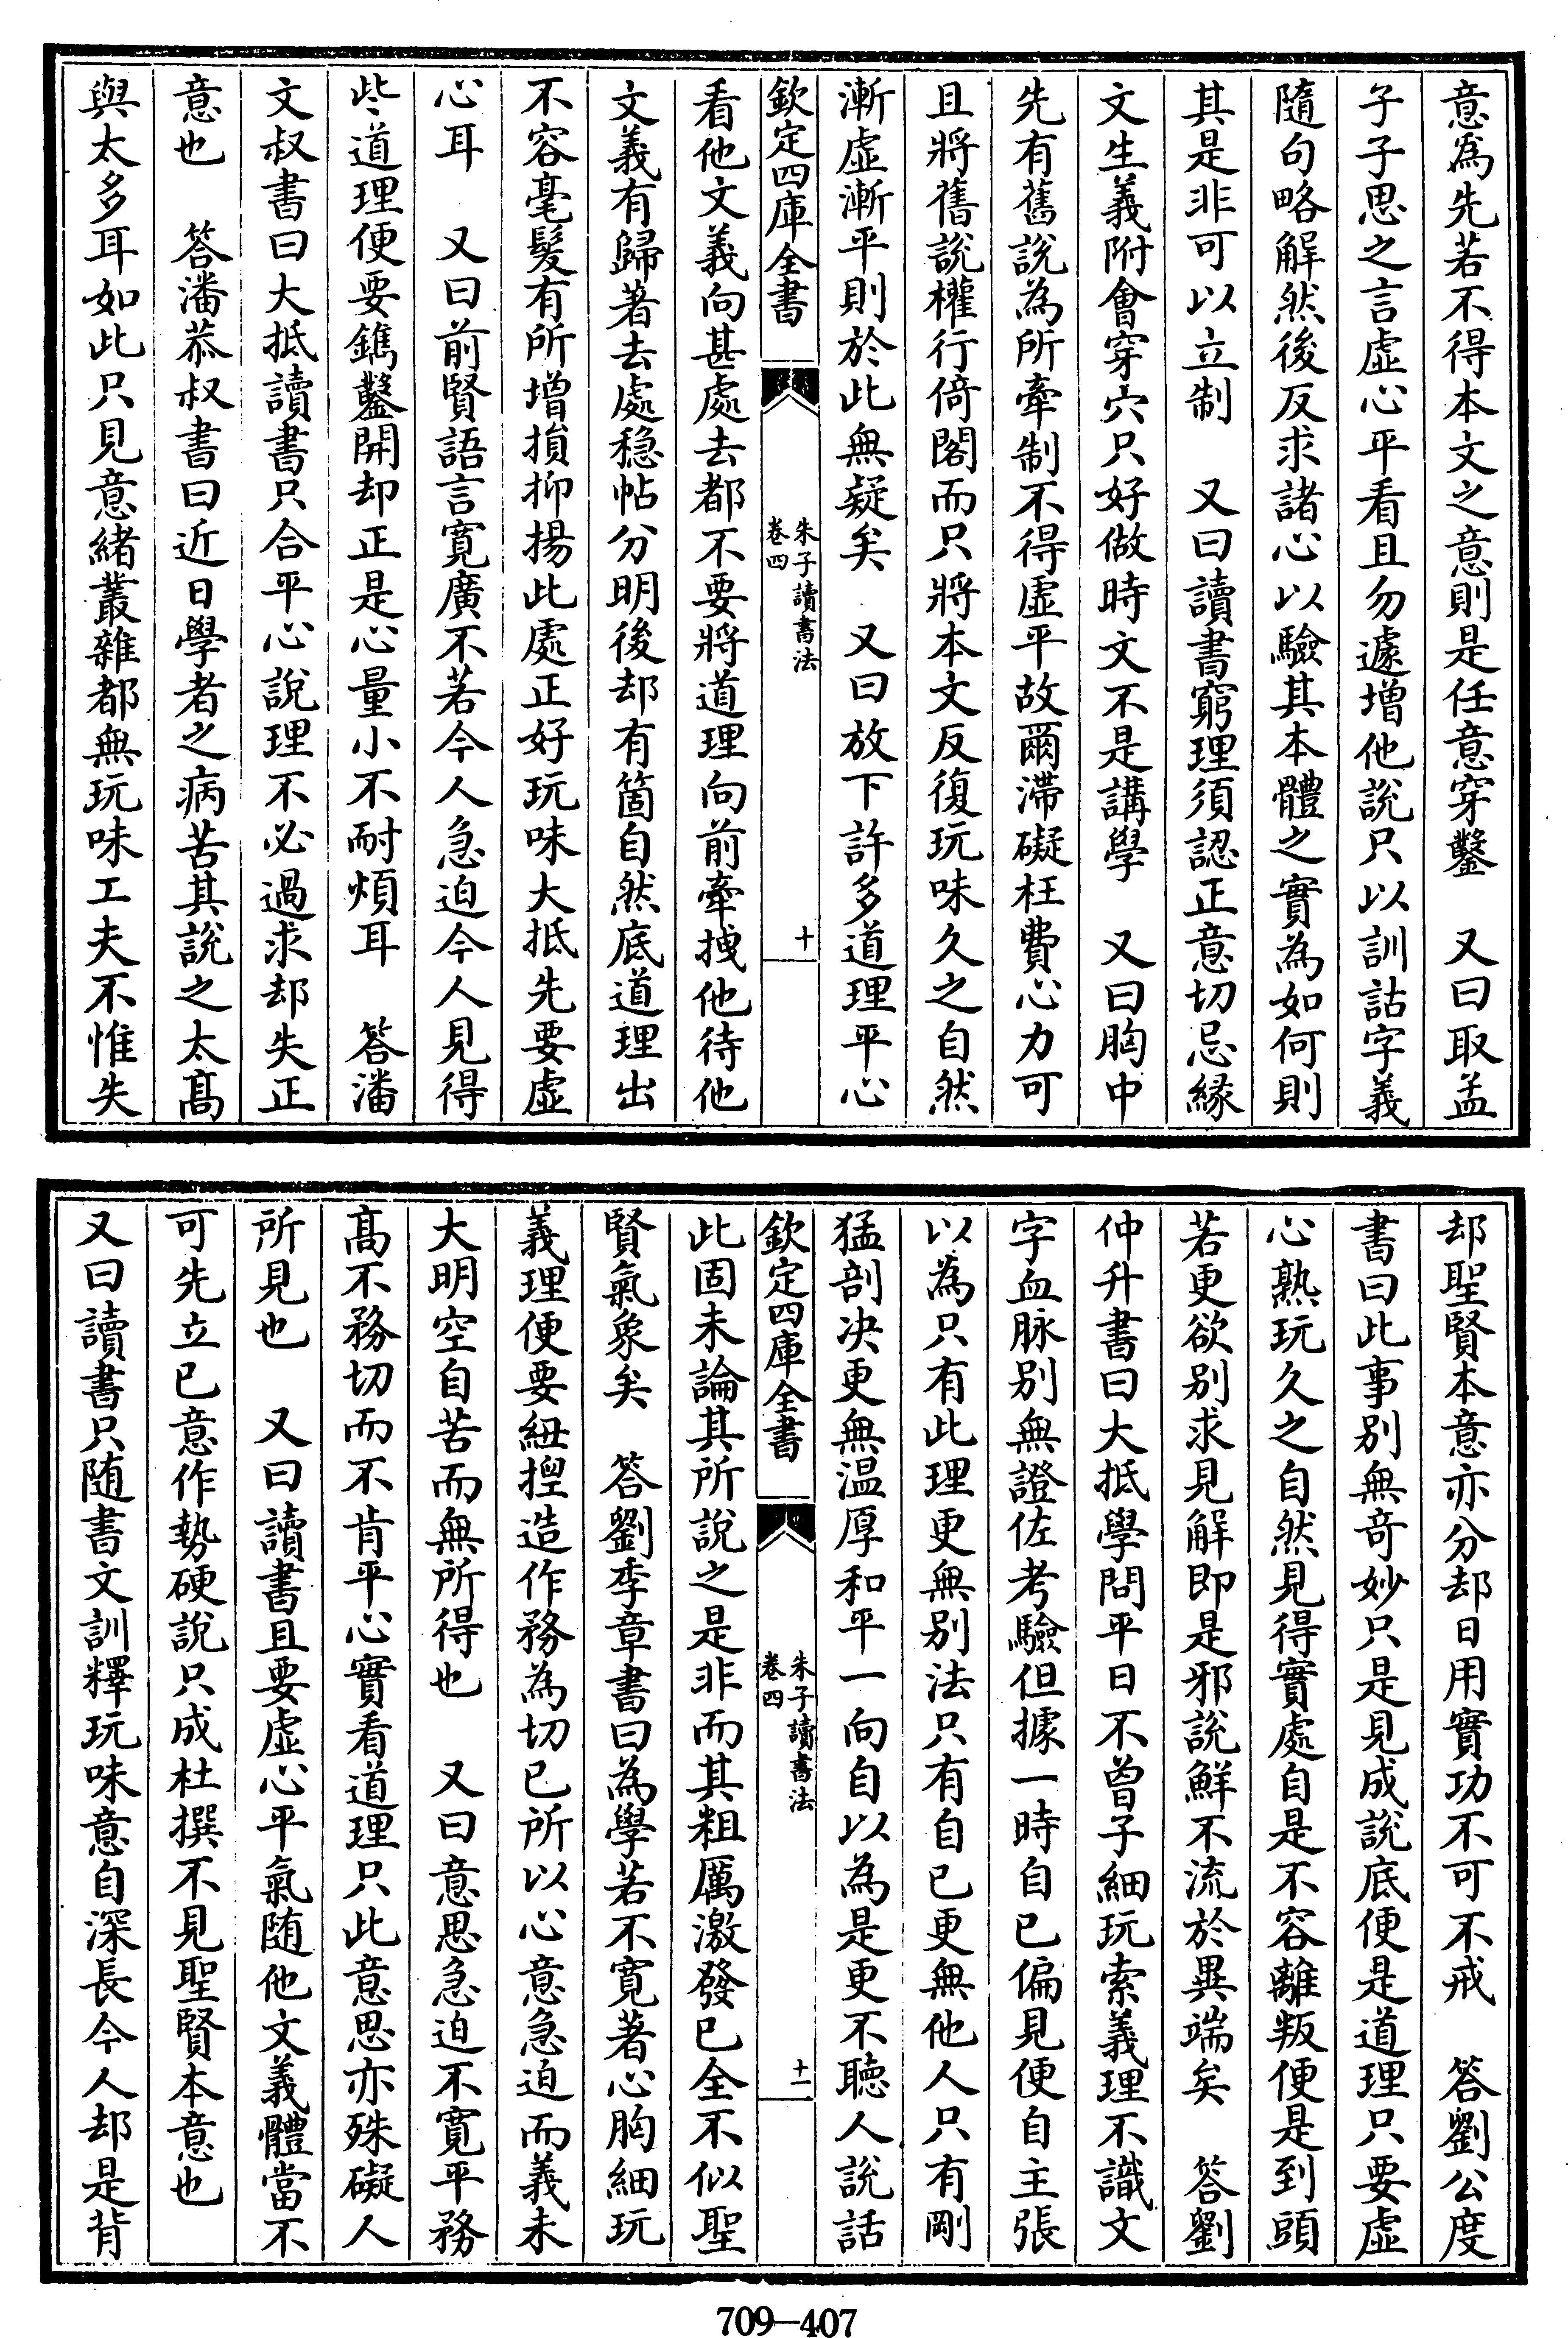 意為先若不得本文之意則是任意穿鑿　又曰取孟
子子思之言虛心平看且勿遽增他說只以訓詁字義
隨句略解然後反求諸心以驗其本體之實為如何則
其是非可以立制　又曰讀書窮理須認正意切忌緣
文生義附會穿穴只好做時文不是講學　又曰胸中
先有舊說為所牽制不得虛平故爾滯礙枉費心力可
且將舊說權行倚閣而只將本文反復玩味久之自然
漸虛漸平則於此無疑矣　又曰放下許多道理平心
欽定四庫全書　朱子讀書法　卷四　十
看他文義向甚處去都不要將道理向前牽拽他待他
文義有歸著去處穩帖分明後却有箇自然底道理出
不容毫髮有所增損抑揚此處正好玩味大抵先要虛
心耳　又曰前賢語言寬廣不若今人急迫今人見得
些道理便要鐫鑿開却正是心量小不耐煩耳　答潘
文叔書曰大抵讀書只合平心說理不必過求却失正
意也　答潘恭叔書曰近日學者之病苦其說之太髙
與太多耳如此只見意緒叢雜都無玩味工夫不惟失
却聖賢本意亦分却日用實功不可不戒　答劉公度
書曰此事别無奇妙只是見成說底便是道理只要虛
心熟玩久之自然見得實處自是不容離叛便是到頭
若更欲别求見解即是邪說鮮不流於異端矣　答劉
仲升書曰大抵學問平日不曽子細玩索義理不識文
字血脉别無證佐考驗但據一時自已偏見便自主張
以為只有此理更無别法只有自已更無他人只有剛
猛剖決更無溫厚和平一向自以為是更不聽人說話
欽定四庫全書　朱子讀書法　卷四　十一
此固未論其所說之是非而其粗厲激發已全不似聖
賢氣象矣　答劉季章書曰為學若不寛著心胸細玩
義理便要紐揑造作務為切已所以心意急迫而義未
大明空自苦而無所得也　又曰意思急迫不寛平務
髙不務切而不肯平心實看道理只此意思亦殊礙人
所見也　又曰讀書且要虛心平氣随他文義體當不
可先立已意作勢硬說只成杜撰不見聖賢本意也
又曰讀書只随書文訓釋玩味意自深長今人却是背
709—407